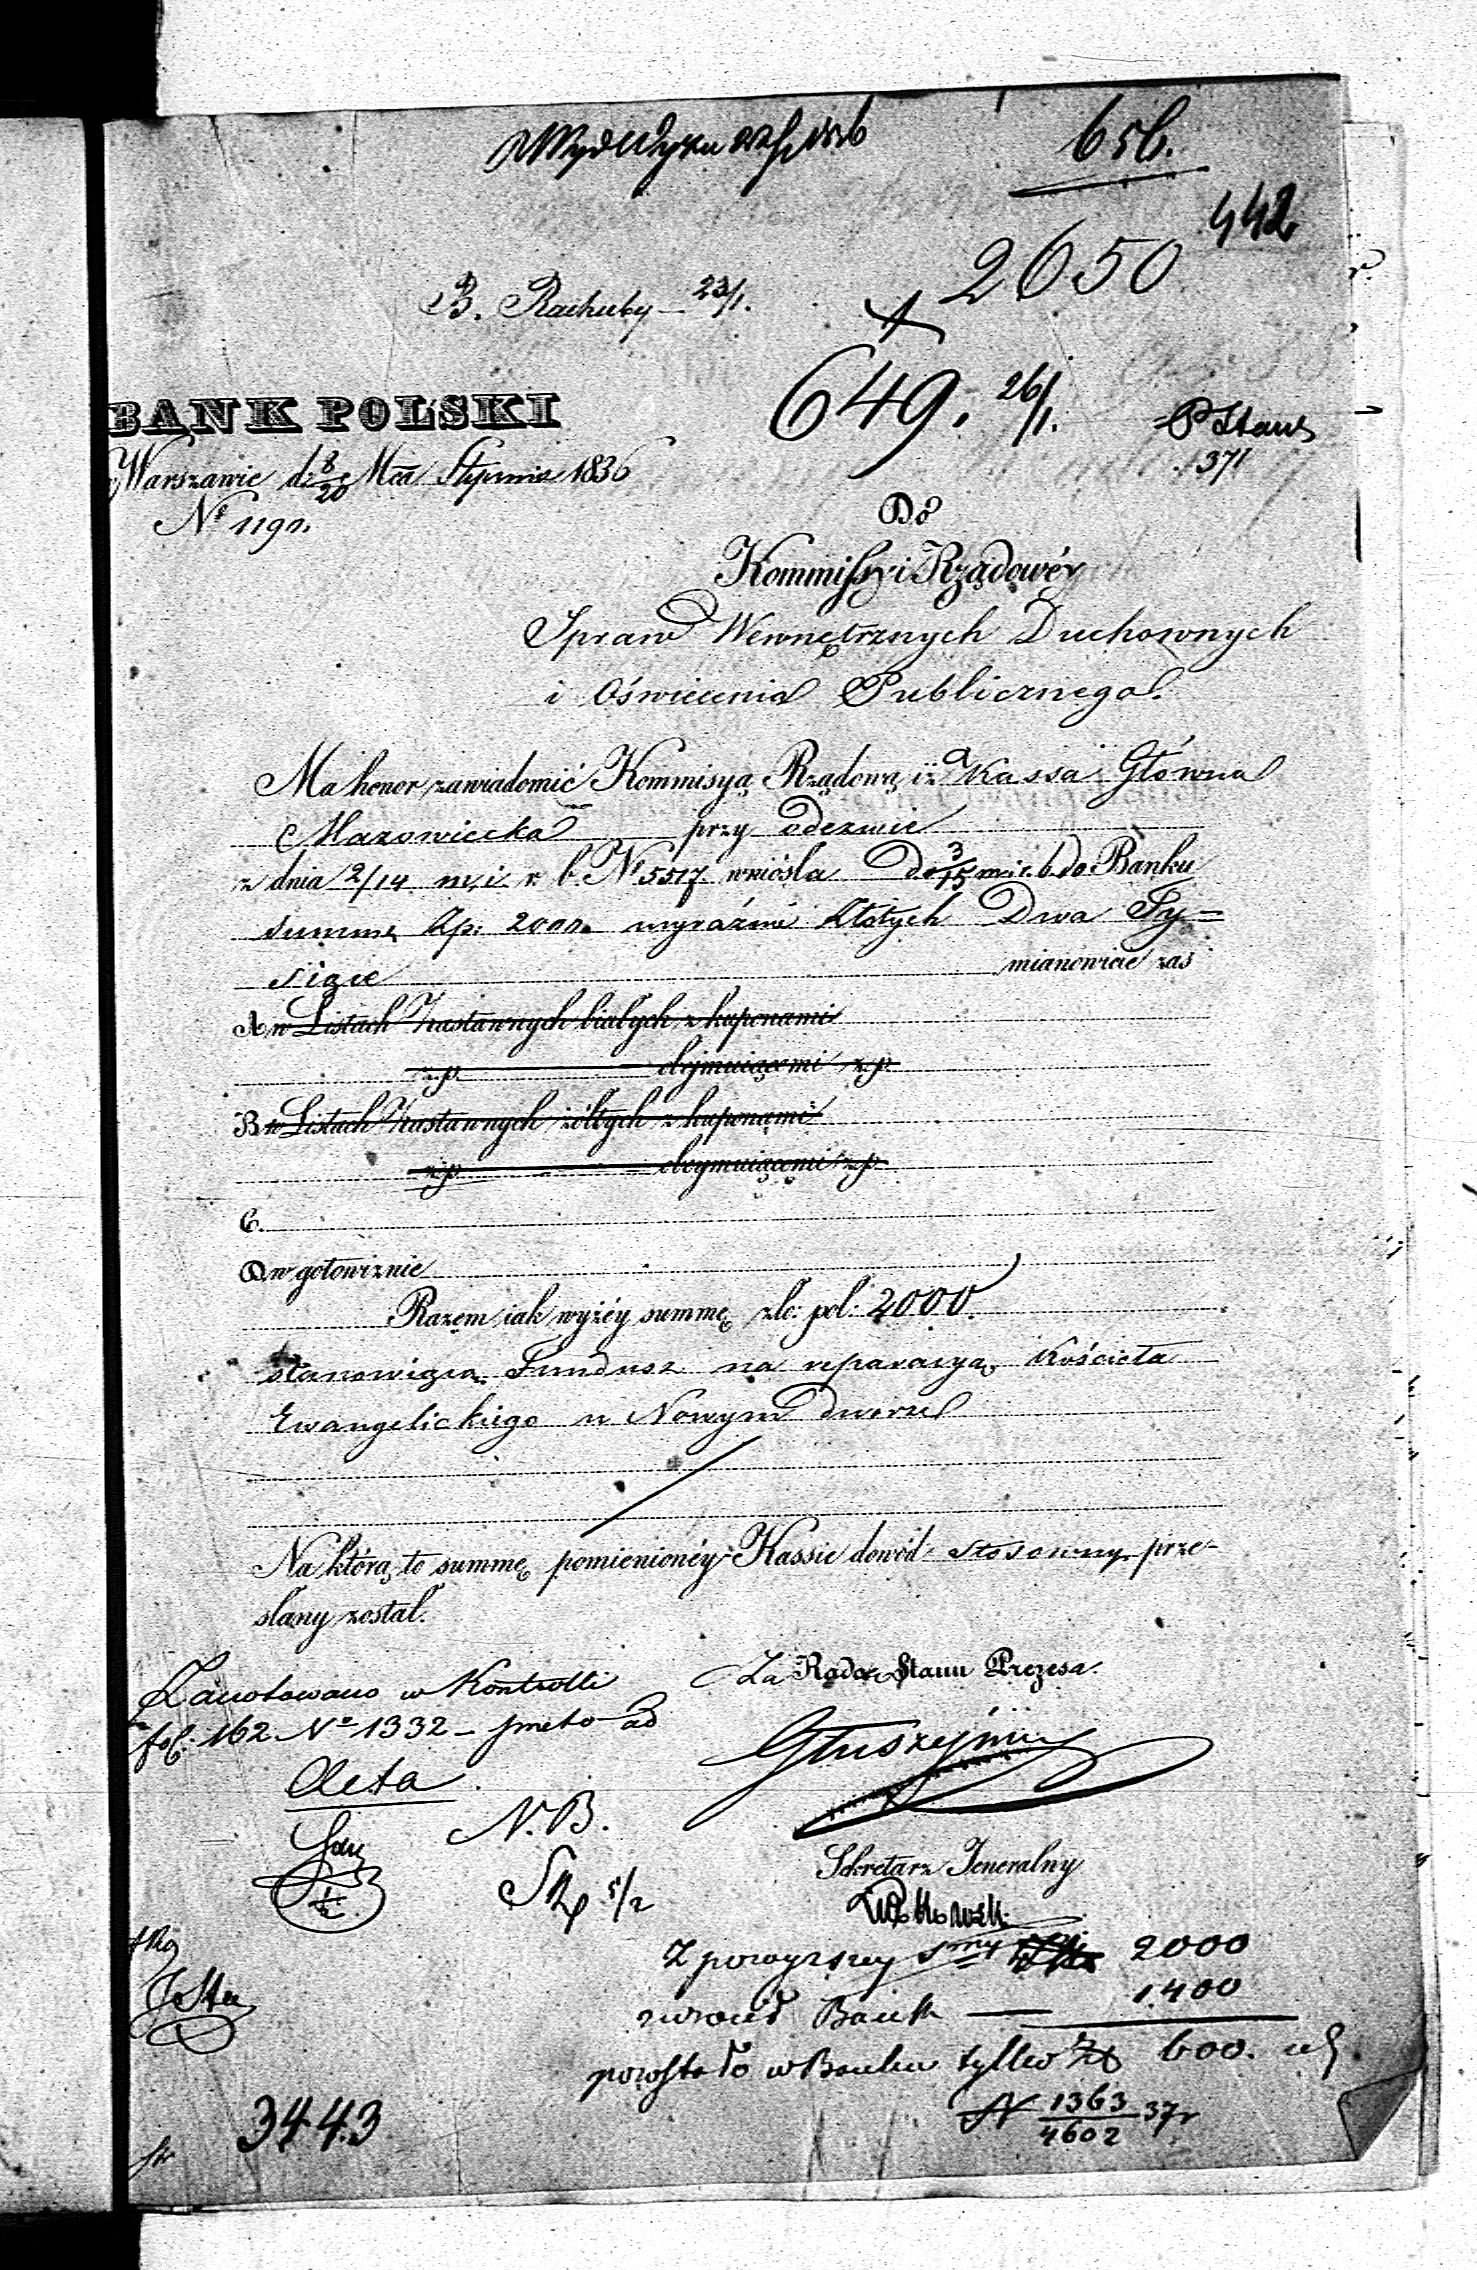 656.
442
2650
B. Rachuby 23/1.
649. 26/1.
BANK POLSKI
P Stans
371
w Warszawie d. 8/20 Mca Stycznia 1836
Nº 1190.
Do
Kommissyi Rządowéy
Spraw Wewnętrznych Duchownych
i Oświecenia Publicznego.
Ma honor zawiadomić Kommisyą Rządową iż Kassa Główna
Mazowiecka przy odezwie
z dnia 2/14 m. i r. b. Nº 5517 wniosła D. 3/15 m. i r. b. do Banku
summę Zp: 2000. wyraźnie Złotych Dwa Ty=
siące mianowicie zaś
A w Listach Zastawnych białych z kuponami
zp. obejmuiącemi zp.
B w Listach Zastawnych żółtych z kuponami
zp. obeymuiącemi zp.
C.
D w gotowiznie
Razem jak wyżéy summę złt: pol: 2000.
stanowiącą Fundusz na reparacyą Kościoła
Ewangelickiego w Nowym dworze
Na którą to summę pomienionéy Kassie dowód stosowny prze-
słany został.
Zanotowano w Kontrolli
fol: 162 Nº 1332 – ad
Acta
Za Radcę Stanu Prezesa
N.B.
5/2
Sekretarz Jeneralny
Z powyższey smy 2000
zwrócił Bank — 1400
pozostało w Banku tylko Zł 600.
N 1363/4602 37r
3443